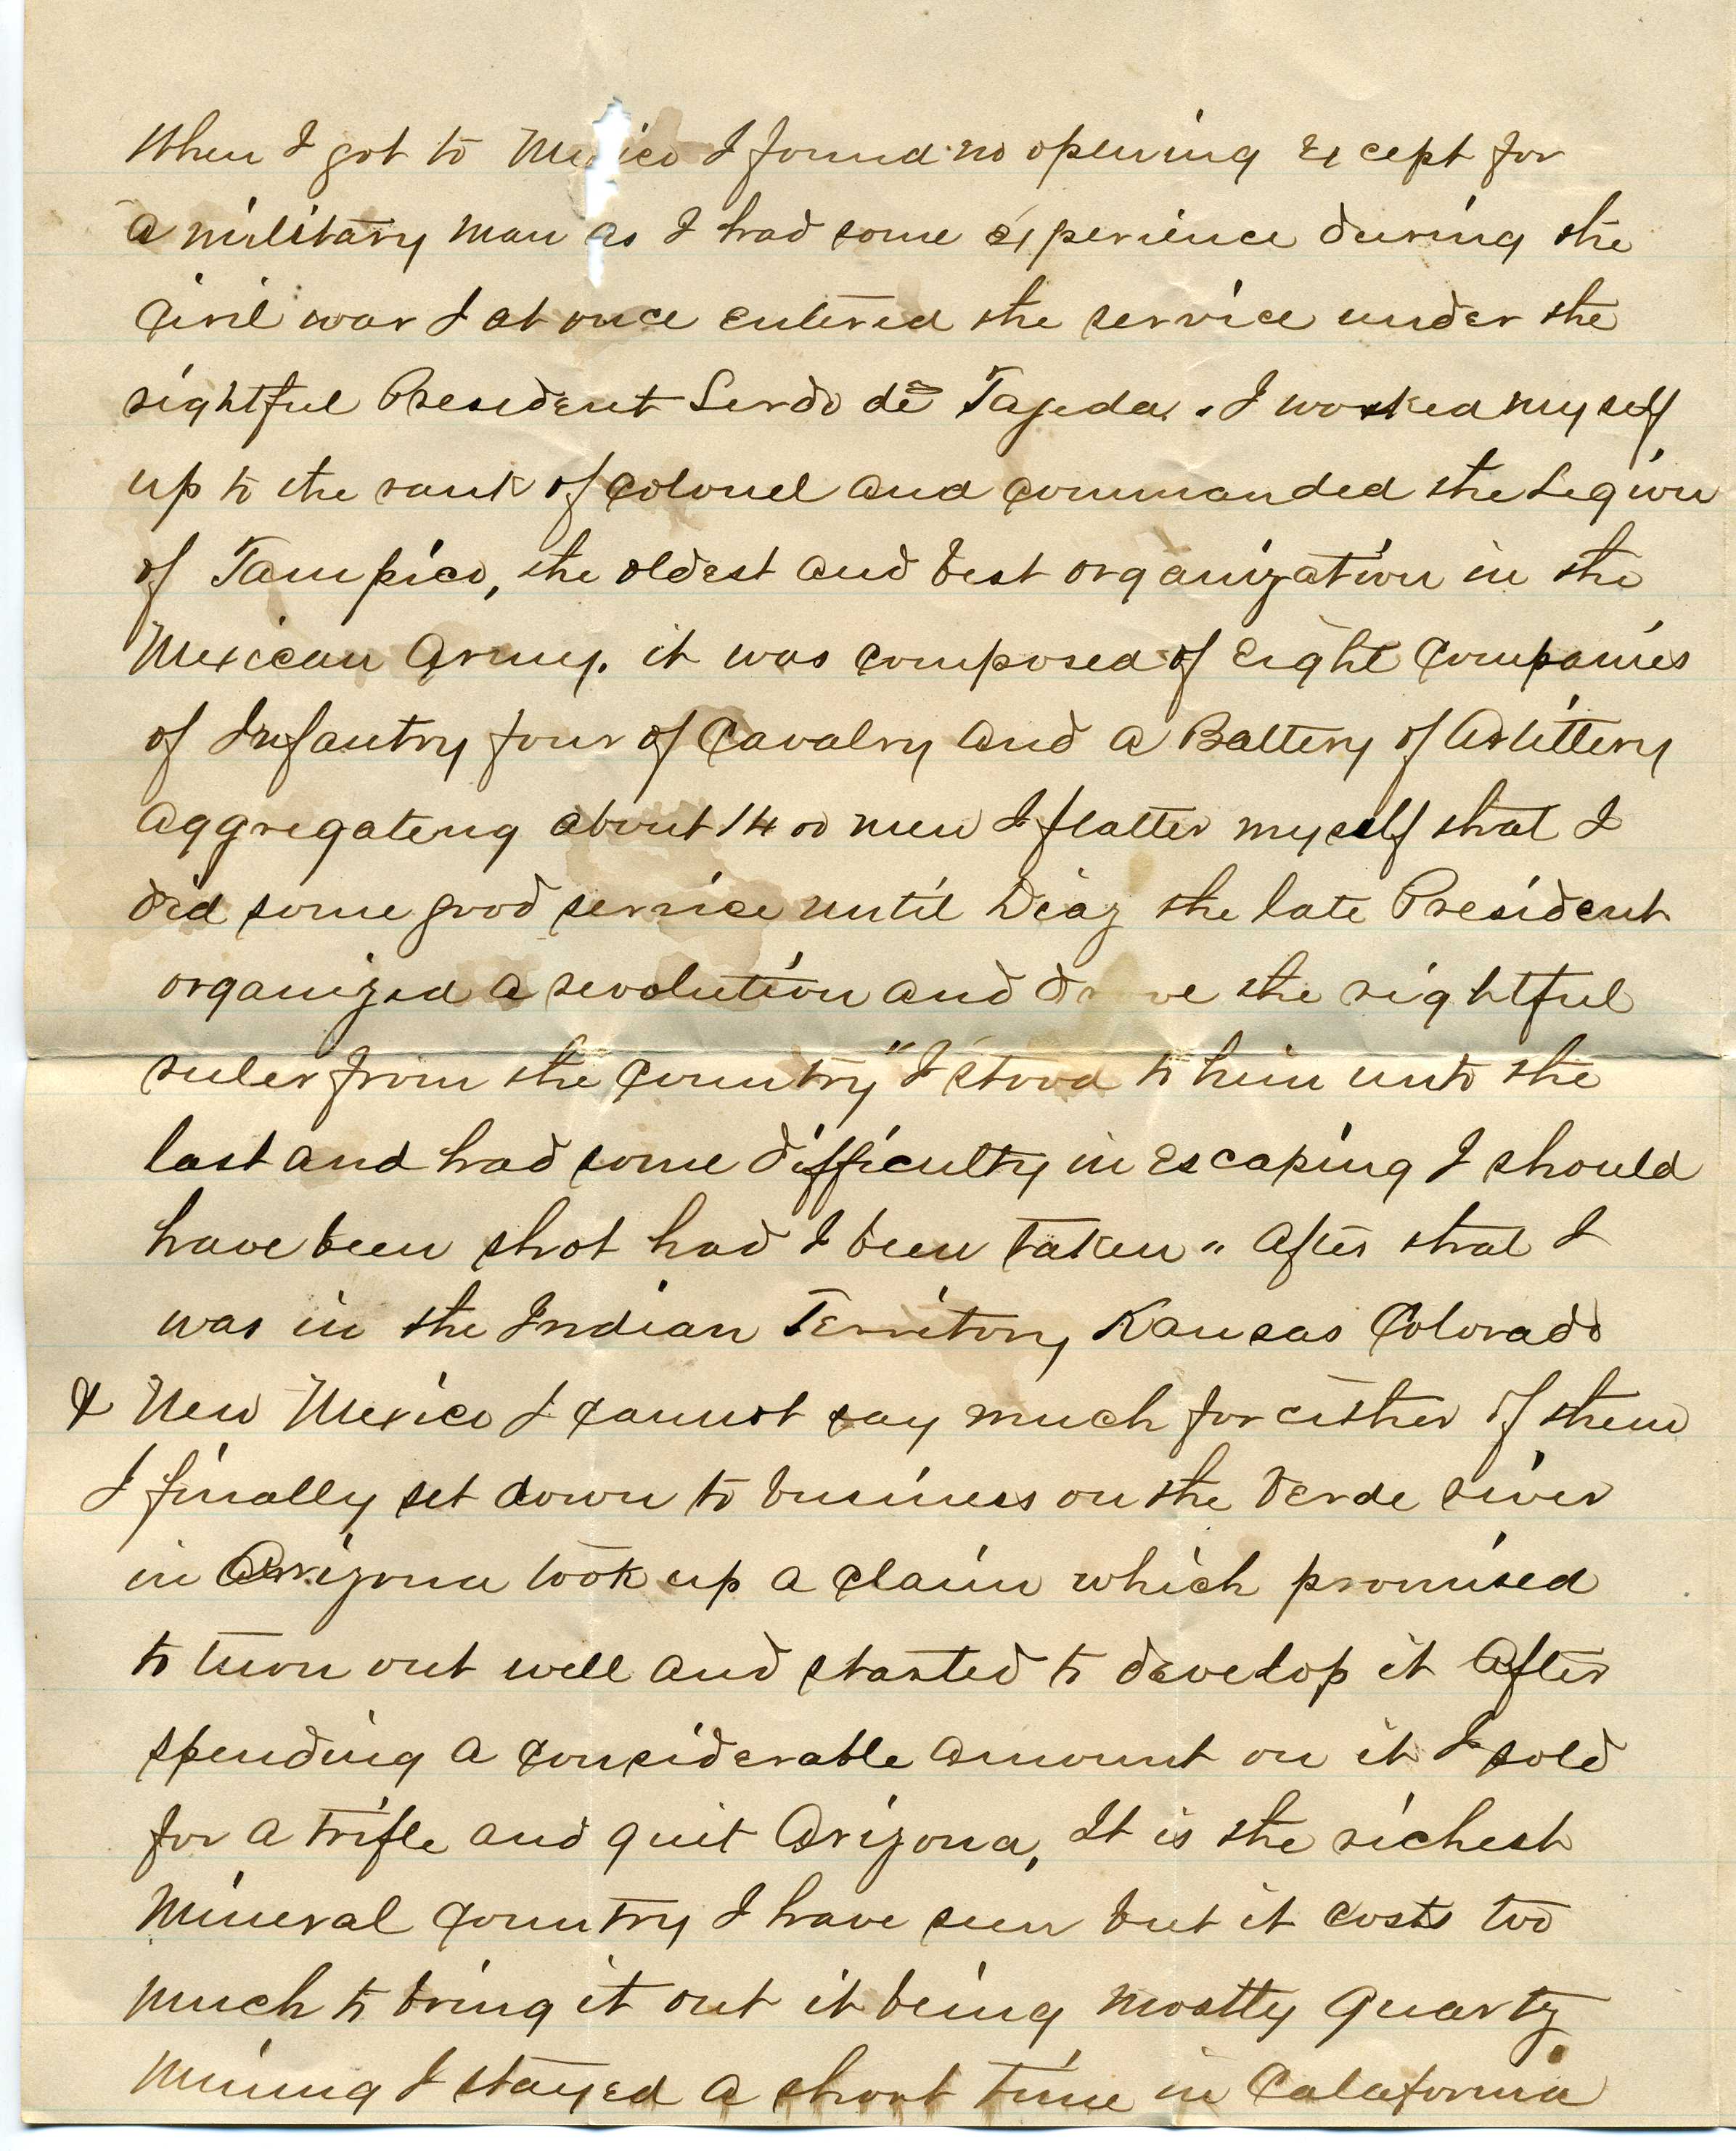 When I got to Mexico I found no opening except for
a military man as I had some experience during the
Civil war I at once entered the service under the
rightful President Lerdo de Tajeda. I worked myself
up to the rank of Colonel and commanded the Legion
of Tampico, the oldest and best organization in the
Mexican Army. it was composed of Eight Companies
of Infantry four of Cavalry and a Battery of Artillery
aggregateing about 1400 men I flatter myself that I
did some good service until Diaz the late President
organized a revolution and drove the rightful
ruler from the country" I stood to him unto the
last and had some difficulty in escaping I should
have been shot had I been taken " After that I
was in the Indian Territory Kansas Colorado
& New Mexico I cannot say much for either of them
I finally set down to business on the Verde river
in Arizona took up a claim which promised
to turn out well and started to develop it After
spending a considerable amount on it I sold
for a trifle and quit Arizona, It is the richest
Mineral country I have seen but it costs too
much to bring it out it being mostly Quartz
Mining I stayed a short time in Calafornia